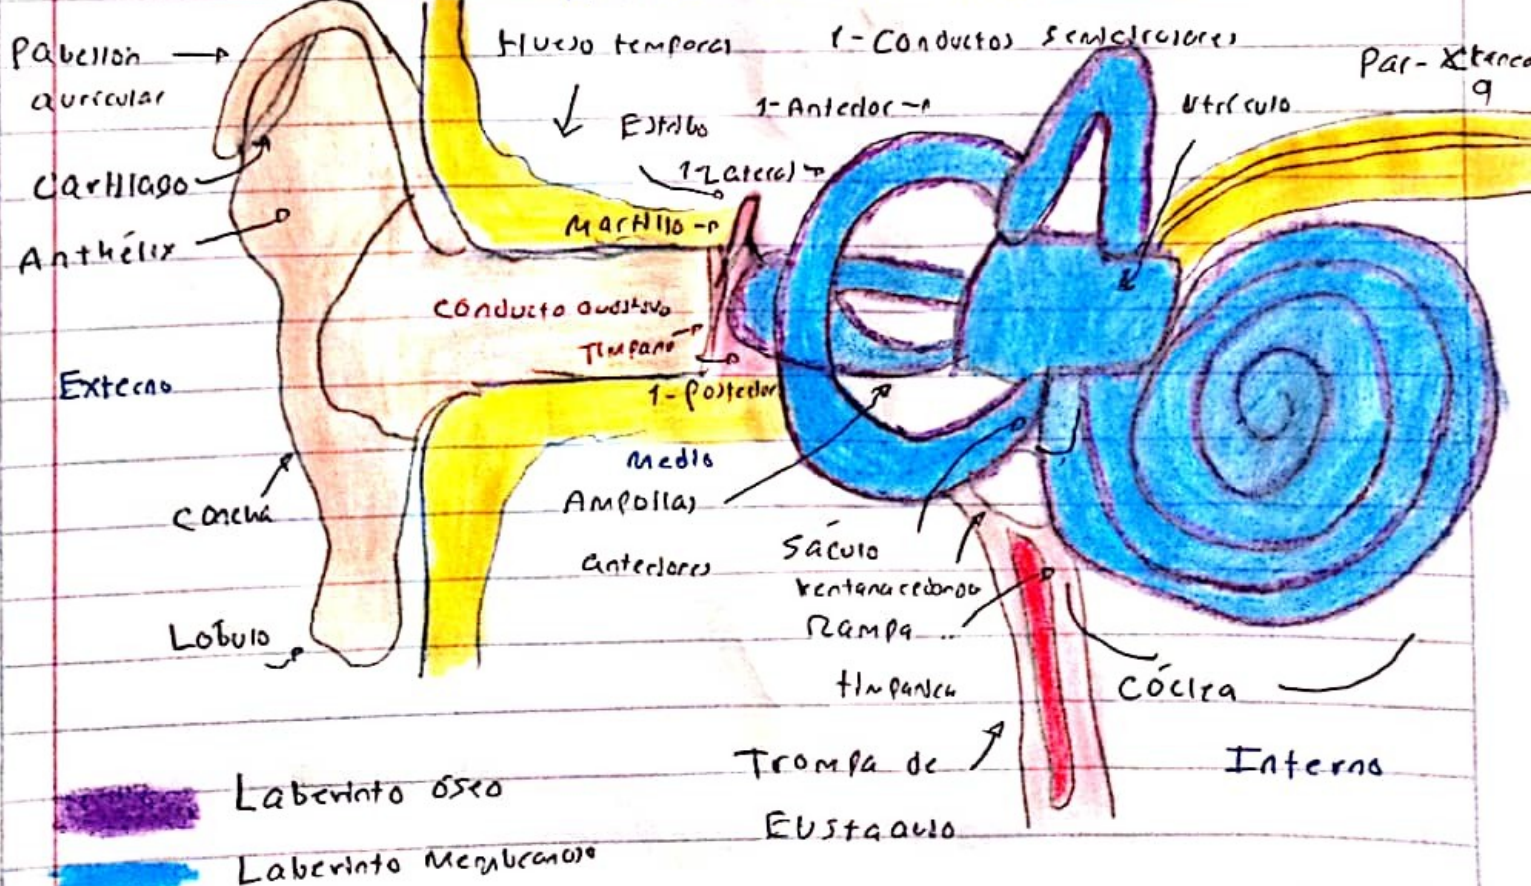 Pabellón
auricular
Hueso temporal
1-Conductos semicirculares
Par-
9
Estribo
1-Anterior
Utrículo
Cartílago
1-Lateral
Anthélix
Martillo
Conducto auditivo
Tímpano
Externo
1-Posterior
Medio
Ampollas
anteriores
Concha
Sáculo
Ventana redonda
Rampa
timpanica
Lobulo
Cóclea
Trompa de
Eustaquio
Interno
Laberinto óseo
Laberinto Membranoso